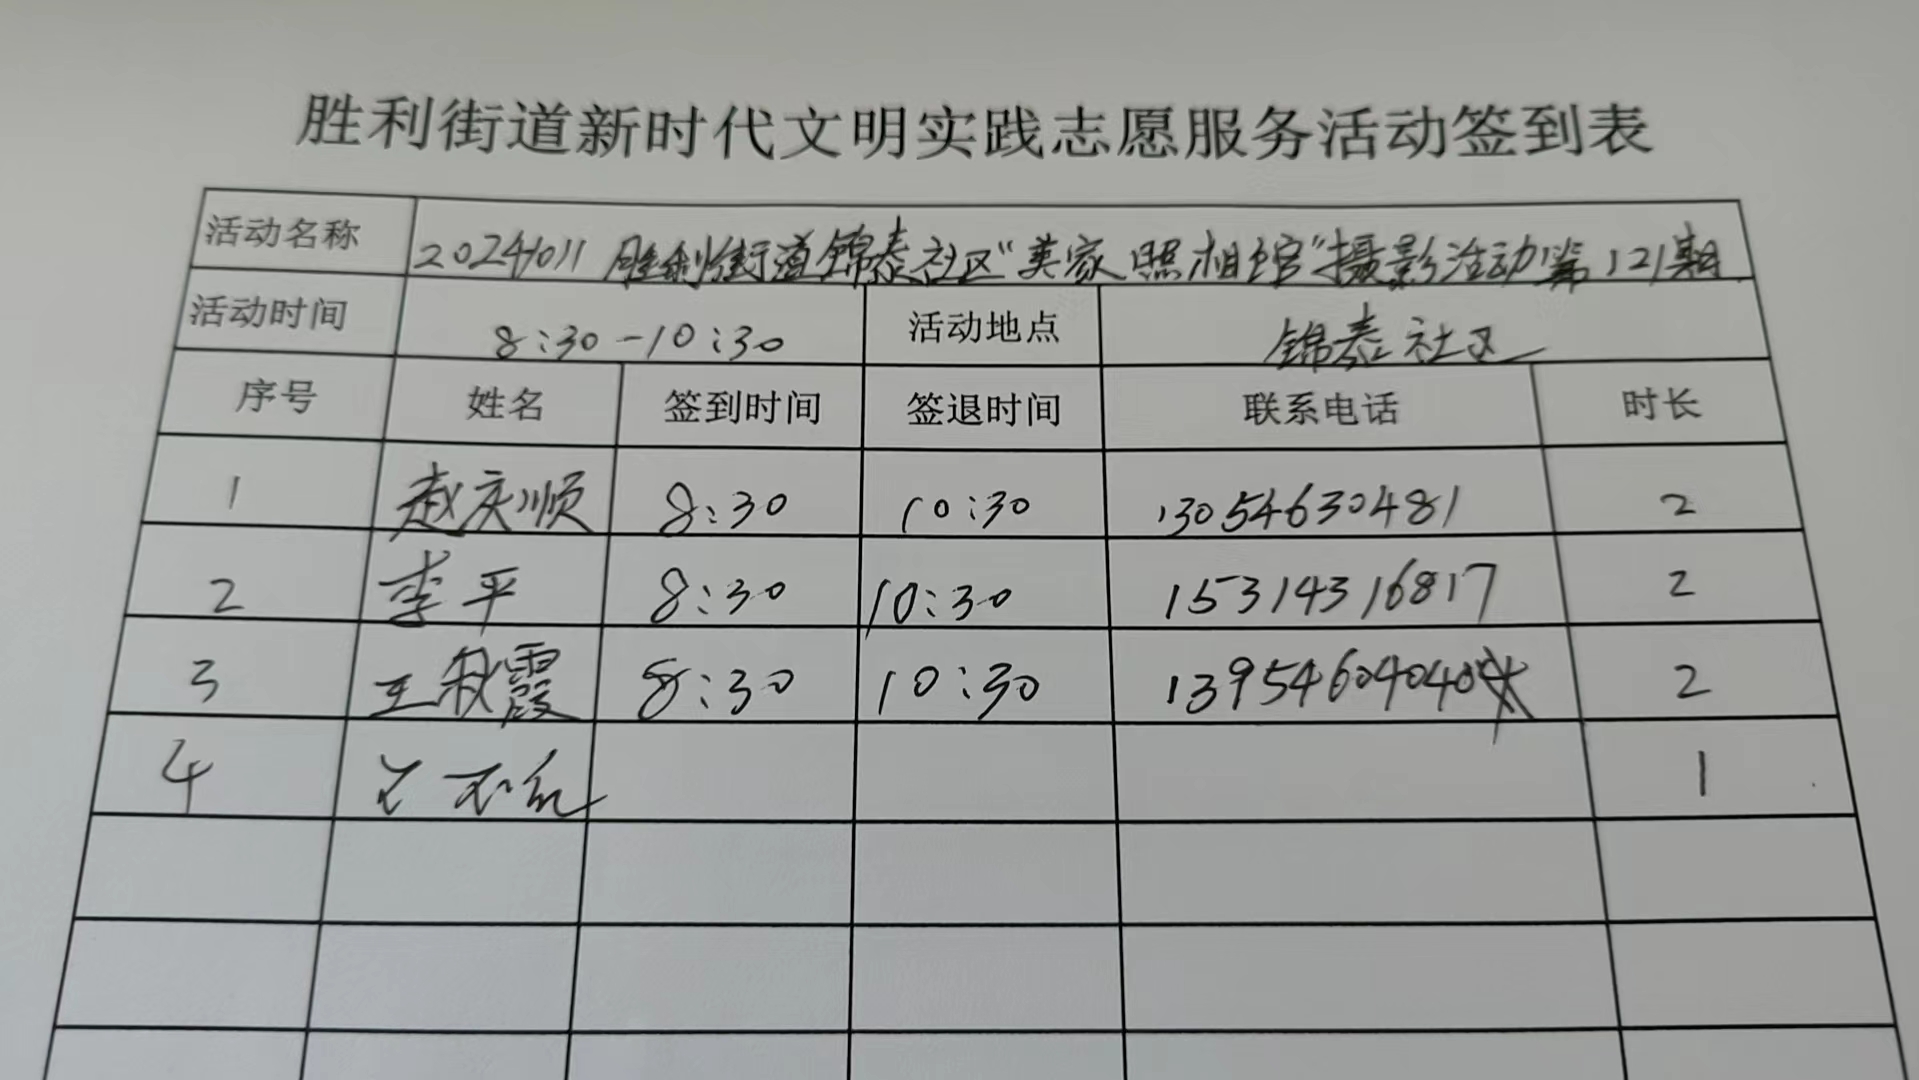 胜利街道新时代文明实践志愿服务活动签到表
活动名称 20241011 胜利街道锦泰社区“美家照相馆”摄影活动第121期
活动时间 8:30-10:30 活动地点 锦泰社区
序号 姓名 签到时间 签退时间 联系电话 时长
1 赵庆顺 8:30 10:30 13054630481 2
2 李平 8:30 10:30 15314316817 2
3 王秋霞 8:30 10:30 13954604040 2
4 1